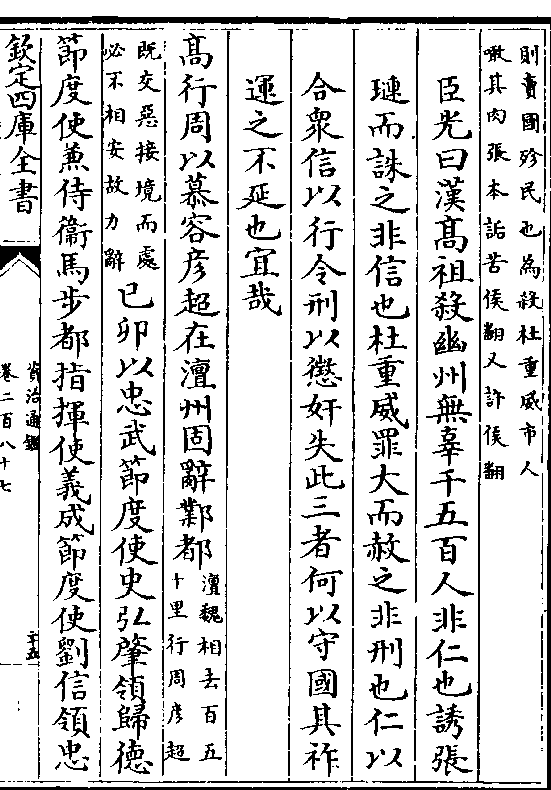 則賣國殄民也為殺杜重威市人
噉其肉張本詬苦侯翻又許侯翻
臣光曰漢高祖殺幽州無辜千五百人非仁也誘張
璉而誅之非信也杜重威罪大而赦之非刑也仁以
合衆信以行令刑以懲奸失此三者何以守國其祚
運之不延也宜哉
高行周以慕容彦超在澶州固辭鄴都
澶魏相去百五
十里行周彦超
既交惡接境而處
必不相安故力辭
已卯以忠武節度使史弘肇領歸德
節度使兼侍衞馬步都指揮使義成節度使劉信領忠
欽定四庫全書
資治通鑑
卷二百八十七
二十五